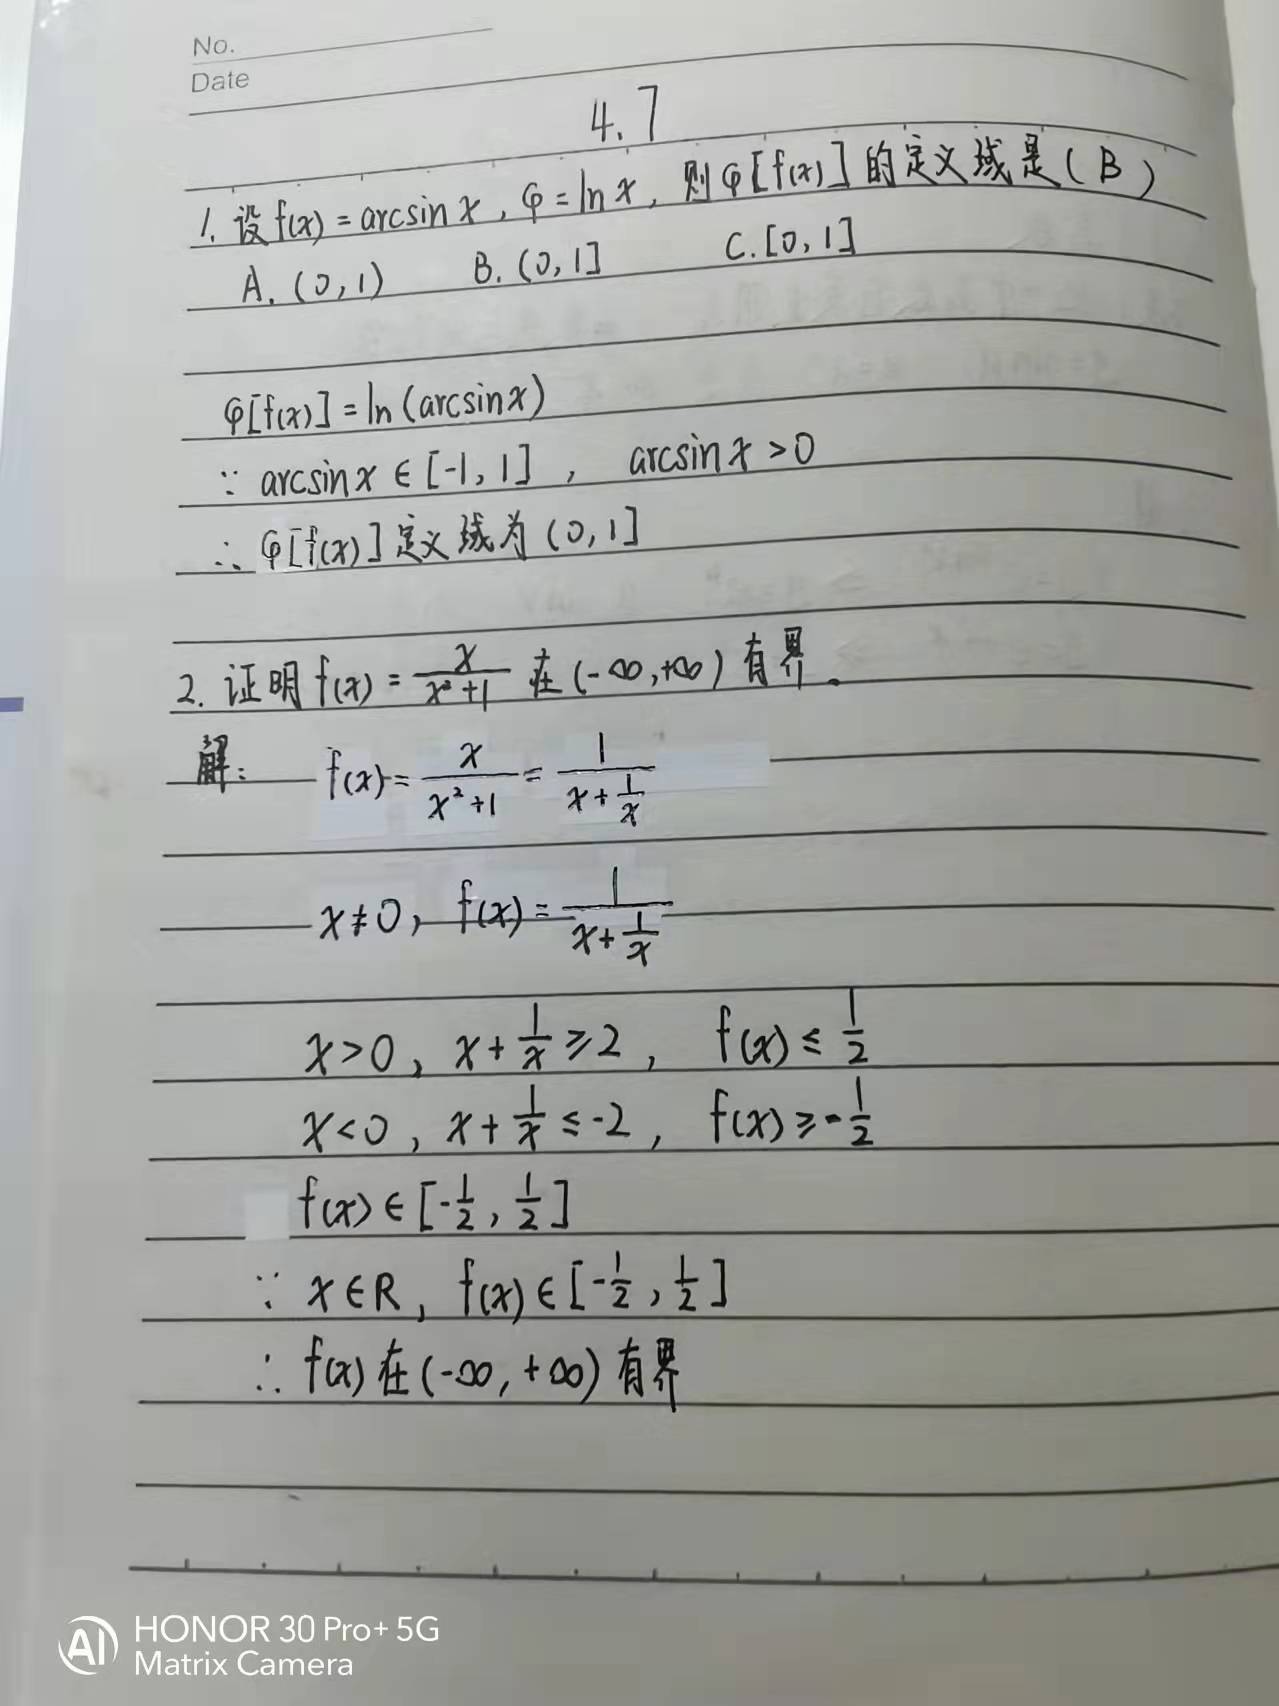 No.
Date
4.7
1. 设f(x)=arcsinx, φ=lnx, 则φ[f(x)]的定义域是(B)
A. (0,1) B. (0,1] C. [0,1]
φ[f(x)]=ln(arcsinx)
∵ arcsinx∈[-1,1], arcsinx>0
∴ φ[f(x)]定义域为(0,1]
2. 证明f(x)=x/(x²+1) 在(-∞,+∞)有界.
解: f(x)=x/(x²+1)=1/(x+1/x)
x≠0, f(x)=1/(x+1/x)
x>0, x+1/x≥2, f(x)≤1/2
x<0, x+1/x≤-2, f(x)≥-1/2
f(x)∈[-1/2, 1/2]
∵ x∈R, f(x)∈[-1/2, 1/2]
∴ f(x)在(-∞,+∞)有界
AI HONOR 30 Pro+ 5G
Matrix Camera